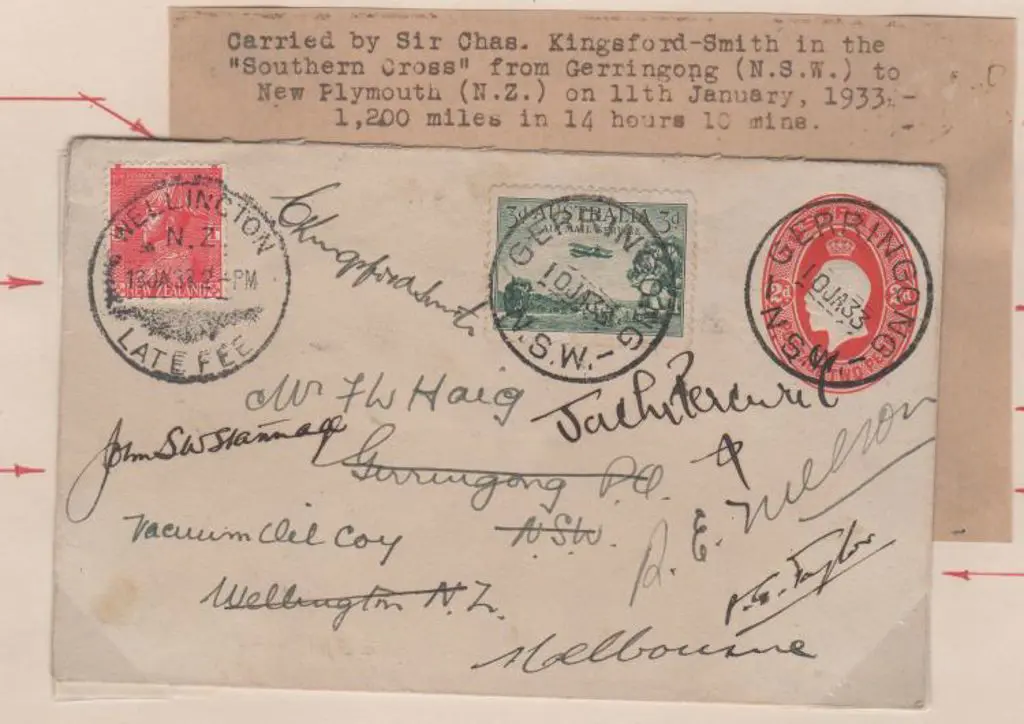 Carried by Sir Chas. Kingsford-Smith in the
"Southern Cross" from Gerringong (N.S.W.) to
New Plymouth (N.Z.) on 11th January, 1933.-
1,200 miles in 14 hours 10 mins.
WELLINGTON
N.Z.
JA 33 2 - PM
NEW ZEALAND
LATE FEE
CKingsford Smith
3d AUSTRALIA 3d
AIR MAIL SERVICE
GERRINGONG
10 JA 33
N.S.W.-
GERRINGONG
10 JA 33
N.S.W.-
2d
TWO
Mr F W Haig
Jack Percival
John S W Stannage
Gerringong P.O.
R. E. Nelson
Vacuum Oil Coy
N.S.W.
P. G. Taylor
Wellington N.Z.
Melbourne